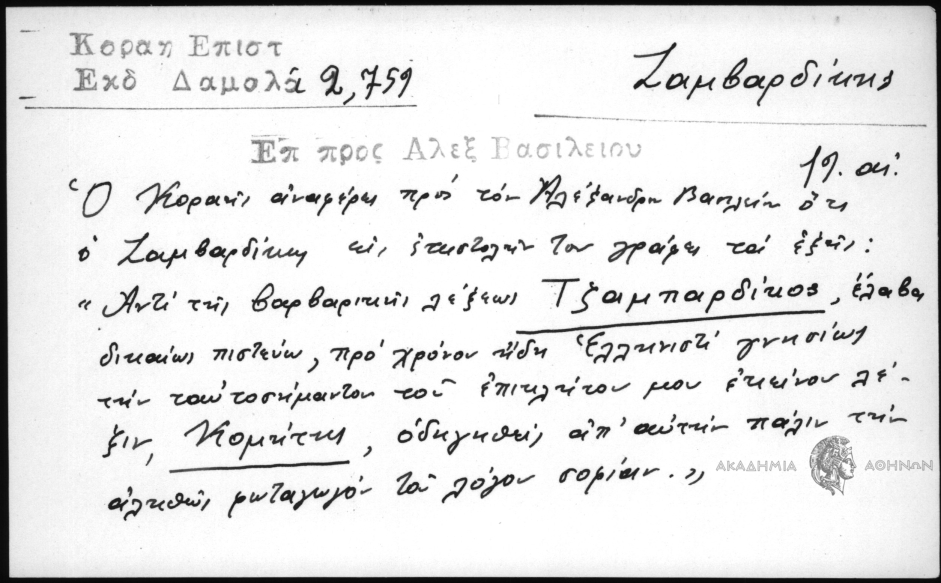 Κοραη Επιστ
Εκδ Δαμαλά 2,759
Ζαμβαρδίκης
Επ προς Αλεξ Βασιλειου
19. αἰ.
Ὁ Κοραῆς ἀναφέρει πρός τόν Ἀλέξανδρον Βασιλείου ὅτι
ὁ Ζαμβαρδίκης εἰς ἐπιστολήν του γράφει τά ἑξῆς:
"Ἀντί τῆς βαρβαρικῆς λέξεως Τζαμπαρδίκος, ἔλαβα
δικαίως πιστεύω, πρό χρόνου ἤδη Ἑλληνιστί γνησίως
τήν ταὐτοσήμαντον τοῦ ἐπικλήτου μου ἐκείνου λέ-
ξιν, Κομήτης, ὁδηγηθείς ἀπ' αὐτήν πάλιν τήν
ἀληθῶς φωταγωγόν τοῦ λόγου σοφίαν."
ΑΚΑΔΗΜΙΑ ΑΘΗΝΩΝ